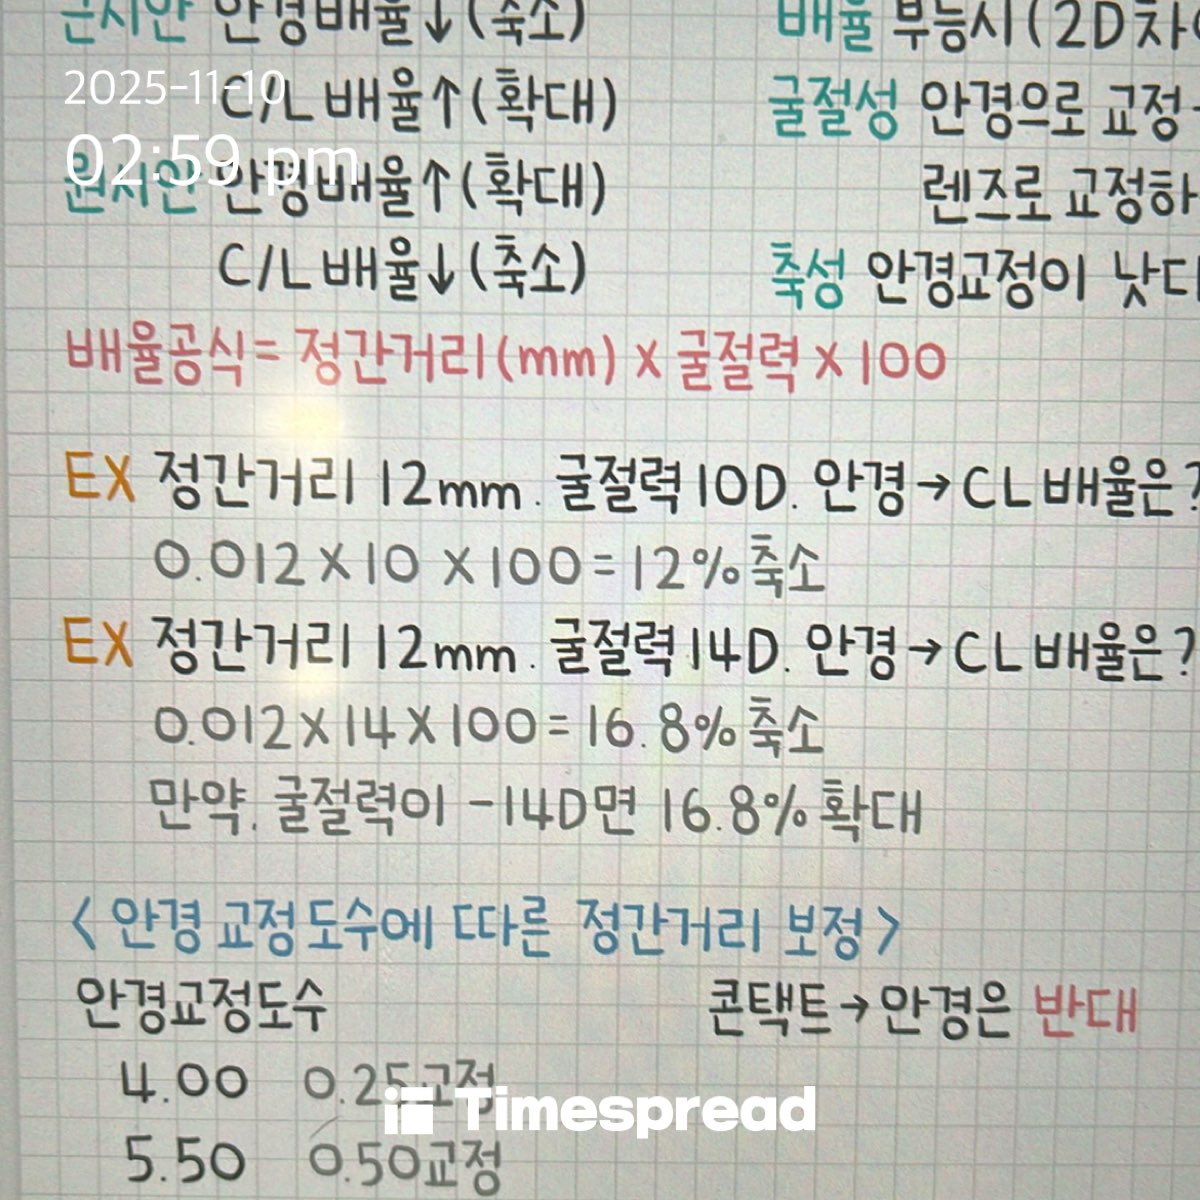 근시안 안경배율↓(축소)
배율 부등시(2D차이
2025-11-10
C/L배율↑(확대)
굴절성 안경으로 교정
02:59 pm
원시안 안경배율↑(확대)
렌즈로 교정하
C/L배율↓(축소)
축성 안경교정이 낫다
배율공식=정간거리(mm)x굴절력x100
EX 정간거리 12mm. 굴절력10D. 안경→CL배율은?
0.012x10 x100=12%축소
EX 정간거리 12mm. 굴절력14D. 안경→CL배율은?
0.012x14x100=16.8%축소
만약. 굴절력이 -14D면 16.8%확대
<안경 교정도수에 따른 정간거리 보정>
안경교정도수
콘택트→안경은 반대
4.00 0.25교정
Timespread
5.50 0.50교정